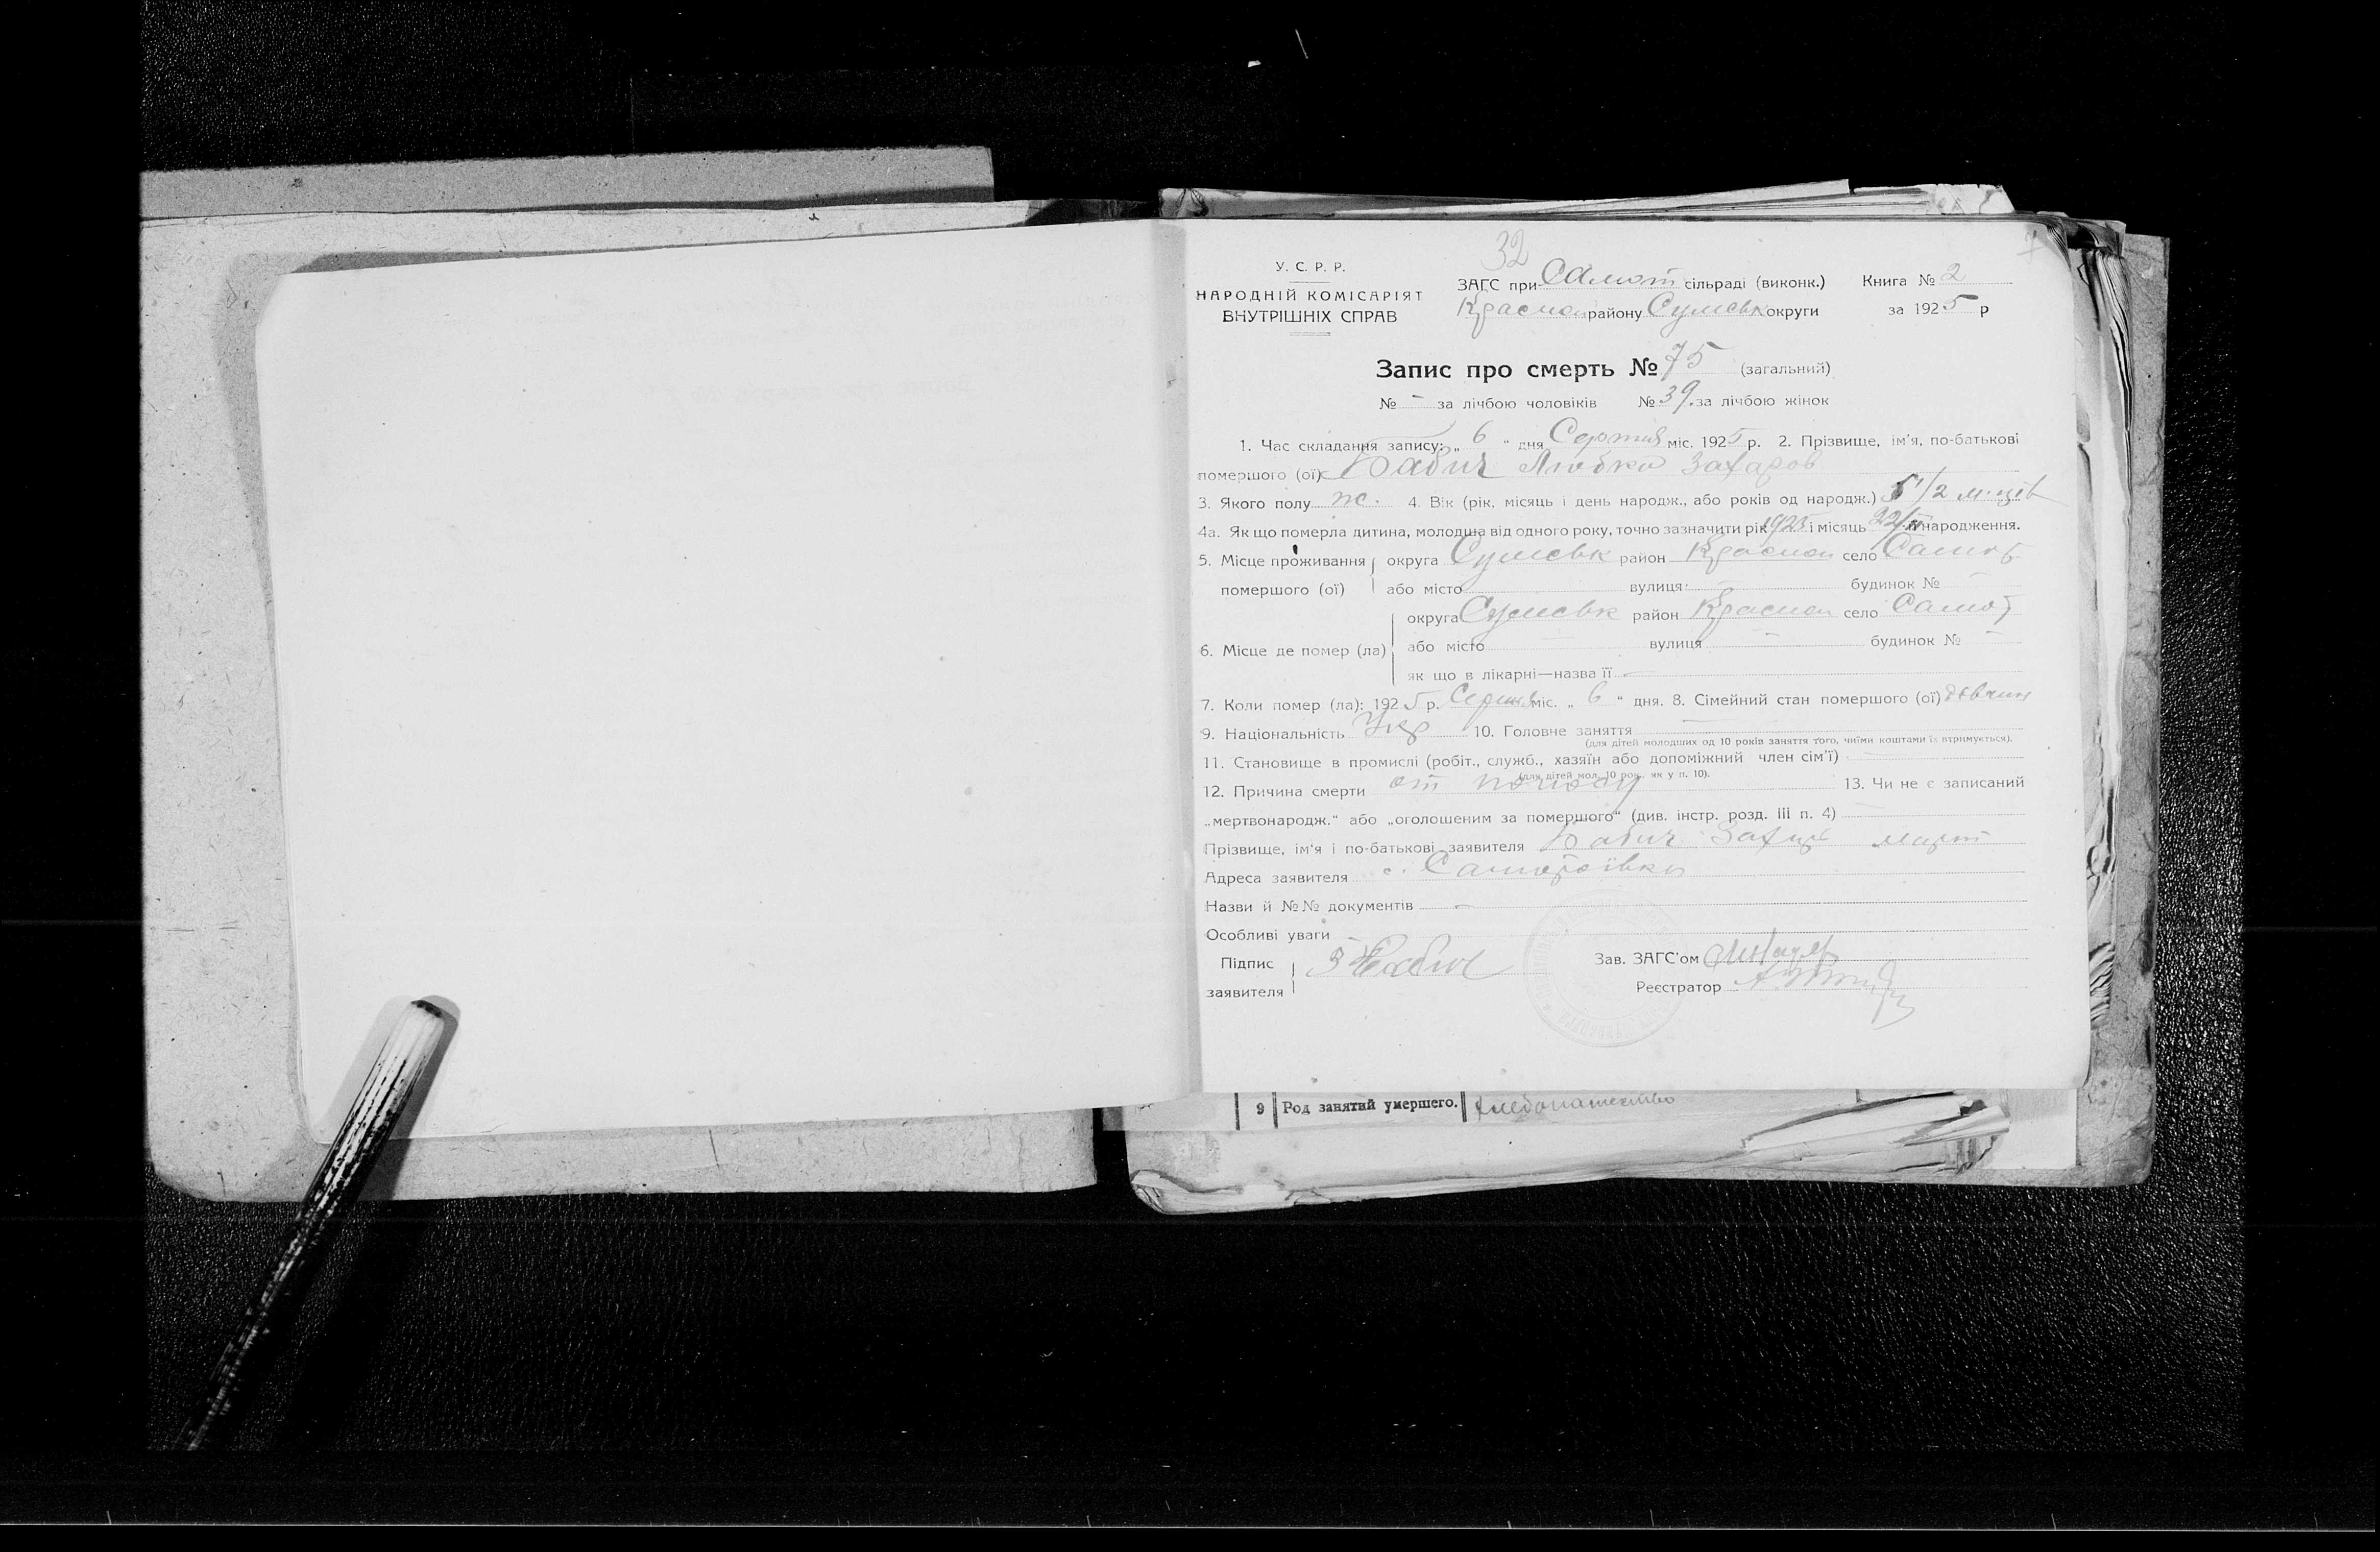 32
7
У. С. Р. Р.
НАРОДНІЙ КОМІСАРІЯТ
ВНУТРІШНІХ СПРАВ
ЗАГС при Самот сільраді (виконк.) Книга № 2
Красноп району Сумськ округи за 1925 р
Запис про смерть № 75 (загальний)
№ - за лічбою чоловіків № 39. за лічбою жінок
1. Час складання запису: „ 6 “ дня Серпня міс. 1925 р. 2. Прізвище, ім'я, по-батькові
помершого (ої) Бабич Любка Захаров
3. Якого полу ж. 4. Вік (рік, місяць і день народж., або років од народж.) 5 1/2 м-ців
4а. Як що померла дитина, молодша від одного року, точно зазначити рік 1925 і місяць 22/II народження.
5. Місце проживання округа Сумськ район Красноп село Самот
помершого (ої) або місто вулиця - будинок № -
округа Сумськ район Красноп село Самот
6. Місце де помер (ла) або місто - вулиця - будинок № -
як що в лікарні—назва її -
7. Коли помер (ла): 1925 р. Серпня міс. „ 6 “ дня. 8. Сімейний стан помершого (ої) дівчин
9. Національність Укр 10. Головне заняття -
(для дітей молодших од 10 років заняття того, чиїми коштами їх втримується).
11. Становище в промислі (робіт., служб., хазяїн або допоміжний член сім'ї) -
(для дітей мол. 10 рок. як у п. 10).
12. Причина смерти от поносу 13. Чи не є записаний
„мертвонародж.“ або „оголошеним за помершого“ (див. інстр. розд. III п. 4) -
Прізвище, ім'я і по-батькові заявителя Бабич Захар Март
Адреса заявителя с. Самотоївка
Назви й №№ документів -
Особливі уваги -
Підпис З Бабич Зав. ЗАГС'ом
заявителя Реєстратор
9 Род занятий умершего. хлебопашество